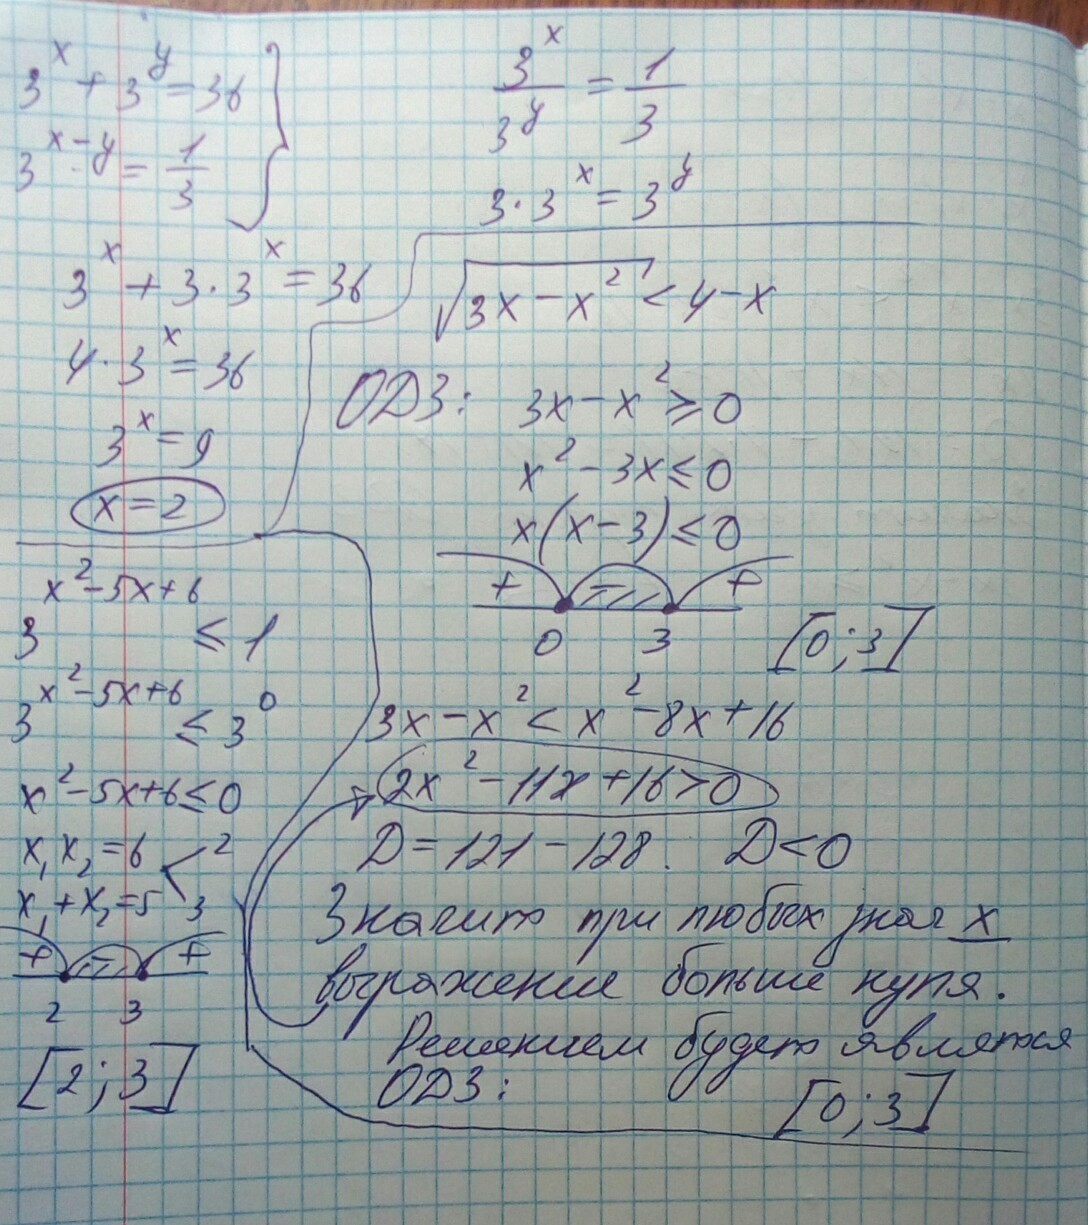 3^x + 3^y = 36
3^{x-y} = 1/3
3^x/3^y = 1/3
3·3^x = 3^y
3^x + 3·3^x = 36
4·3^x = 36
3^x = 9
x = 2
√(3x - x²) < 4 - x
ОДЗ: 3x - x² ≥ 0
x² - 3x ≤ 0
x(x - 3) ≤ 0
+ - +
0 3 [0; 3]
3x - x² < x² - 8x + 16
2x² - 11x + 16 > 0
D = 121 - 128. D < 0
Значит при любых знач x
выражение больше нуля.
Решением будет являться
ОДЗ: [0; 3]
3^{x²-5x+6} ≤ 1
3^{x²-5x+6} ≤ 3^0
x² - 5x + 6 ≤ 0
x₁ x₂ = 6 2
x₁ + x₂ = 5 3
+ - +
2 3
[2; 3]